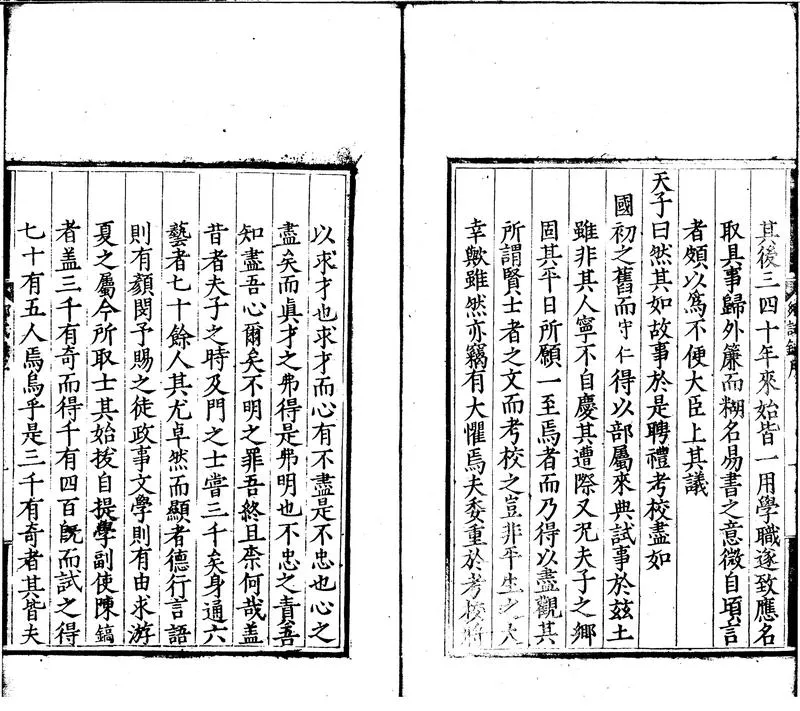 其後三四十年來始皆一用學職遂致應名
取具事歸外簾而糊名易書之意微自頃言
者頗以爲不便大臣上其議
天子曰然其如故事於是聘禮考校盡如
國初之舊而守仁得以部屬來典試事於兹土
雖非其人寧不自慶其遭際又况夫子之鄉
固其平日所願一至焉者而乃得以盡觀其
所謂賢士者之文而考校之豈非平生之大
幸歟雖然亦竊有大懼焉夫委重於考校將
以求才也求才而心有不盡是不忠也心之
盡矣而眞才之弗得是弗明也不忠之責吾
知盡吾心爾矣不明之罪吾終且柰何哉盖
昔者夫子之時及門之士嘗三千矣身通六
藝者七十餘人其尤卓然而顯者德行言語
則有顔閔予賜之徒政事文學則有由求游
夏之屬今所取士其始拔自提學副使陳鎬
者盖三千有奇而得千有四百旣而試之得
七十有五人焉烏乎是三千有奇者其皆夫